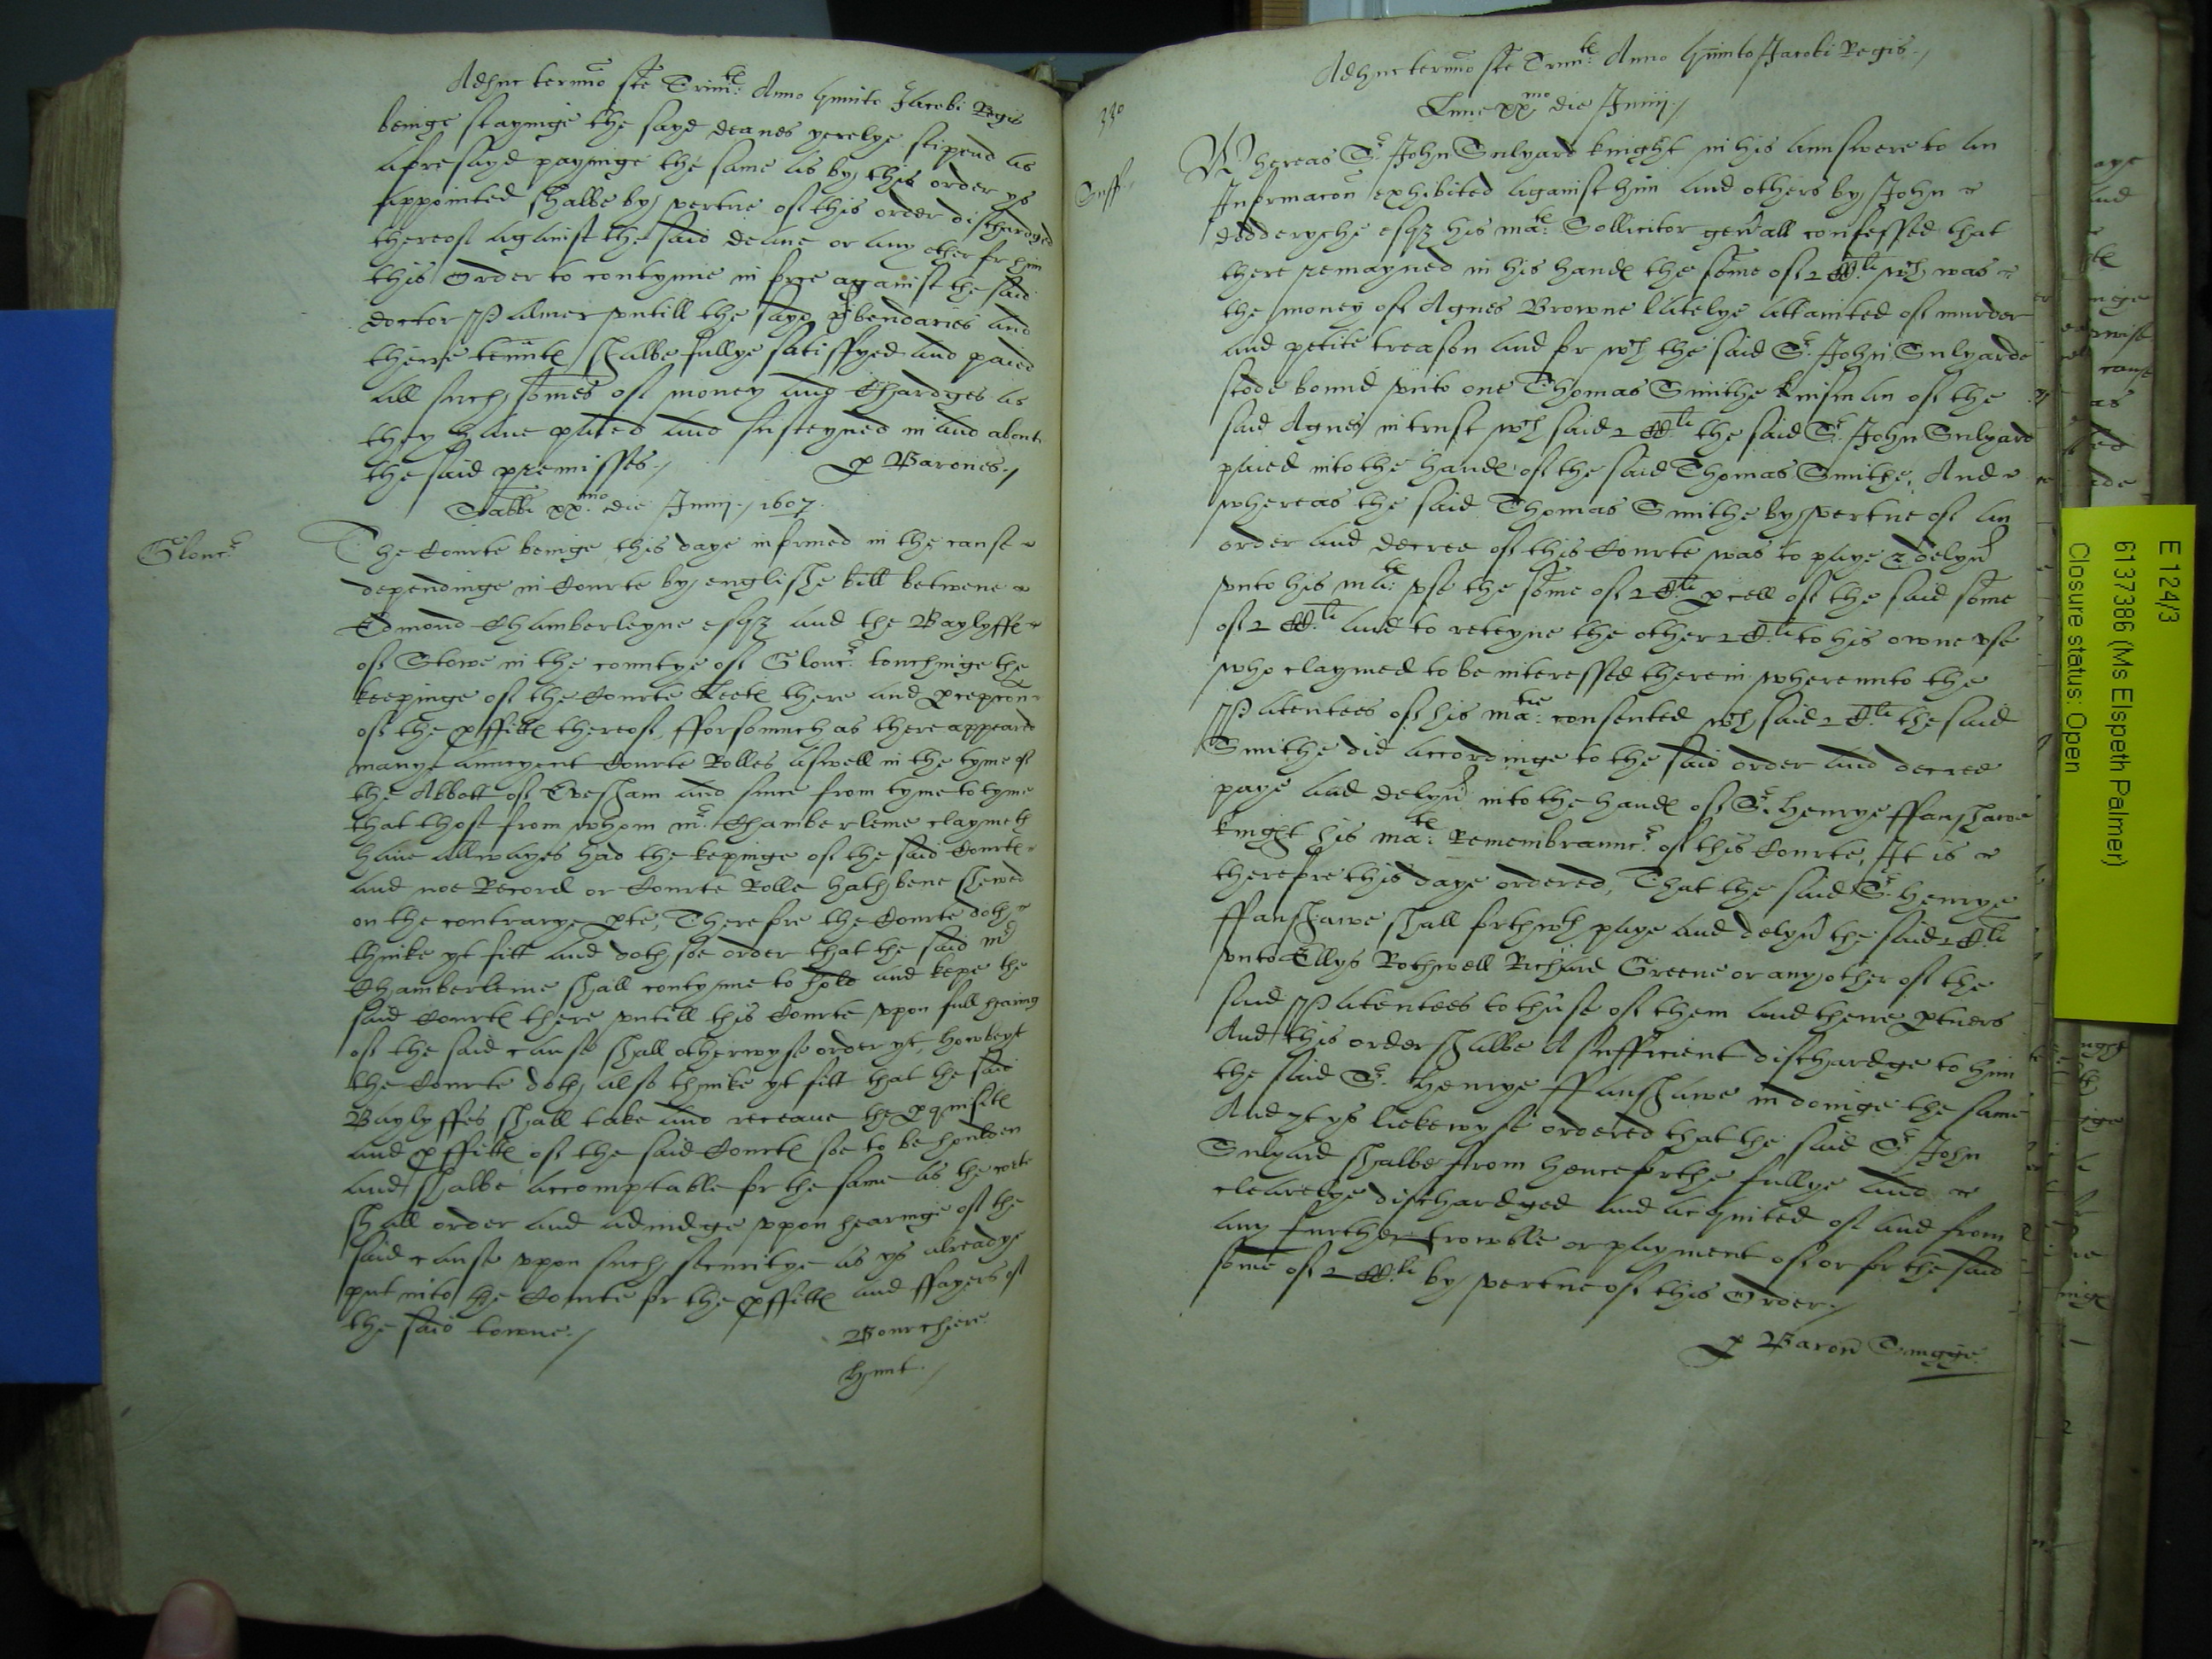 Adhuc termio ste Trinit: Anno Quinto Jacobi Regis
beinge stayinge the sayd deanes yerelye stipend as
aforesayd payinge the same as by this order ys
appointed shalbe by vertue of this order discharged
thereof against the said deane or any other for him
this order to contynue in force against the said
doctor Palmer vntill the sayd pbendaries and
theire tennts shalbe fullye satisfyed and paied
all such somes of money and Chardges as
they haue paied and susteyned in and about
the said premisses./ p Barones./
Sabbi xxmo die Junij./ 1607.
Gloucr
The Courte beinge this daye informed in the cause
dependinge in Courte by englishe bill betwene
Edmond Chamberleyne esqz and the Baylyffes
of Stowe in the countye of Glouc: touchinge the
keepinge of the Courte Leets there and pcepcon
of the pffitts thereof, fforsomuch as there appeared
manye auncyent Courte Rolles aswell in the tyme of
the Abbott of Evesham and since from tyme to tyme
that those from whom mr: Chamberleine claymeth
haue allwayes had the kepinge of the said Courts
and noe Record or Courte Rolle hath bene shewed
on the contrarye pte, Therefore the Courte doth
thinke yt fitt and doth soe order that the said mr
Chamberleine shall contynue to hold and kepe the
said Courts there vntill this Courte vpon full hearing
of the said cause shall otherwyse order yt, howbeyt
the Courte doth also thinke yt fitt that the said
Baylyffes shall take and receaue the pquisits
and pffitts of the said Courts soe to be houlden
and shalbe accomptable for the same as the corte
shall order and adiudge vppon hearinge of the
said cause vppon such securitye as ys alreadye
put into the Courte for the pffitts and ffayers of
the said towne./ Bourchiere
hunt./
330
Adhuc termio ste Trinit: Anno Quinto Jacobi Regis./
Lune xxmo die Junij./
Suff
Whereas Sr John Sulyard knight in his aunswere to an
Informacon exhibited against him and others by John
dodderyche esqz his mats: Sollicitor generall confessed that
there remayned in his hands the some of CCli wch was
the money of Agnes Browne latelye attainted of murder
and petite treason and for wch the said Sr John Sulyarde
stode bound vnto one Thomas Smithe kinsman of the
said Agnes in trust wch said CCli the said Sr John Sulyard
paied into the hands of the said Thomas Smithe, And
whereas the said Thomas Smithe by vertue of an
order and decree of this Courte was to paye & delyu
vnto his mats: vse the some of Cli pcell of the said some
of CCli and to reteyne the other Cli to his owne vse
who claymed to be interessed therein whereunto the
Patentees of his matie: consented wch said Cli the said
Smithe did accordinge to the said order and decree
paye and delyu into the hands of Sr henrye ffanshawe
knight his mats: Remembraunc of this Courte, It is
therefore this daye ordered, That the said Sr henrye
ffanshawe shall forthwth paye and delyu the said Cli
vnto Ellys Rothwell Richard Greene or any other of the
said Patentees to thuse of them and theire ptners
And this order shalbe A sufficient dischardge to him
the said Sr Henrye ffanshawe in doinge the same
And yt ys liekewyse ordered that the said Sr John
Sulyard shalbe from henceforthe fullye and
clearelye dischardged and acquited of and from
any further trowble or payment of or for the said
some of CCli by vertue of this Order./
p Baron Snigge
E 124/3
6137386 (Ms Elspeth Palmer)
Closure status: Open